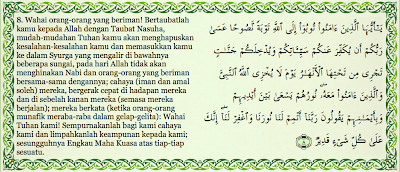 8. Wahai orang-orang yang beriman! Bertaubatlah
kamu kepada Allah dengan Taubat Nasuha,
mudah-mudahan Tuhan kamu akan menghapuskan
kesalahan-kesalahan kamu dan memasukkan kamu
ke dalam Syurga yang mengalir di bawahnya
beberapa sungai, pada hari Allah tidak akan
menghinakan Nabi dan orang-orang yang beriman
bersama-sama dengannya; cahaya (iman dan amal
soleh) mereka, bergerak cepat di hadapan mereka
dan di sebelah kanan mereka (semasa mereka
berjalan); mereka berkata (ketika orang-orang
munafik meraba-raba dalam gelap-gelita): Wahai
Tuhan kami! Sempurnakanlah bagi kami cahaya
kami dan limpahkanlah keampunan kepada kami;
sesungguhnya Engkau Maha Kuasa atas tiap-tiap
sesuatu.
يَـٰٓأَيُّهَا ٱلَّذِينَ ءَامَنُوا۟ تُوبُوٓا۟ إِلَى ٱللَّهِ تَوْبَةً نَّصُوحًا عَسَىٰ
رَبُّكُمْ أَن يُكَفِّرَ عَنكُمْ سَيِّـَٔاتِكُمْ وَيُدْخِلَكُمْ جَنَّـٰتٍ
تَجْرِى مِن تَحْتِهَا ٱلْأَنْهَـٰرُ يَوْمَ لَا يُخْزِى ٱللَّهُ ٱلنَّبِىَّ
وَٱلَّذِينَ ءَامَنُوا۟ مَعَهُۥ نُورُهُمْ يَسْعَىٰ بَيْنَ أَيْدِيهِمْ
وَبِأَيْمَـٰنِهِمْ يَقُولُونَ رَبَّنَآ أَتْمِمْ لَنَا نُورَنَا وَٱغْفِرْ لَنَآ إِنَّكَ
عَلَىٰ كُلِّ شَىْءٍ قَدِيرٌ ٨